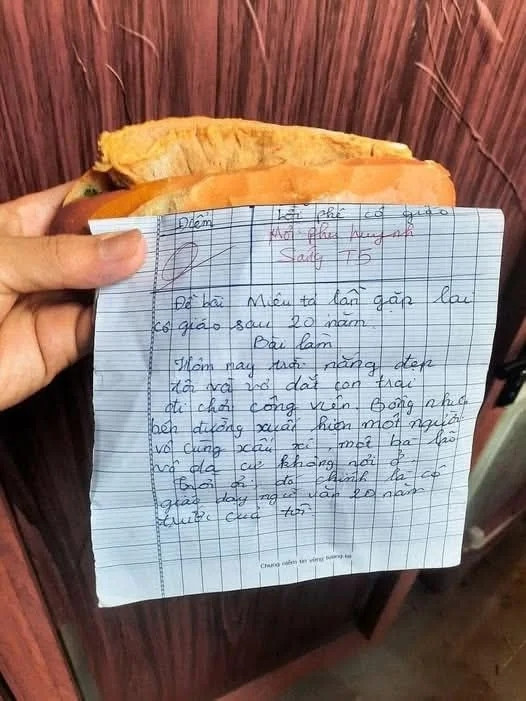 Điểm
Lời phê cô giáo
Mời phụ huynh
Sáng T5
Đề bài Miêu tả lần gặp lại
cô giáo sau 20 năm.
Bài làm
Hôm nay trời nắng đẹp
tôi và vợ dắt con trai
đi chơi công viên. Bỗng nhiên
bên đường xuất hiện một người
vô cùng xấu xí, một bà lão
vô gia cư không nơi ở.
Trời ơi! đó chính là cô
giáo dạy ngữ văn 20 năm
trước của tôi
Chung niềm tin vững tương lai